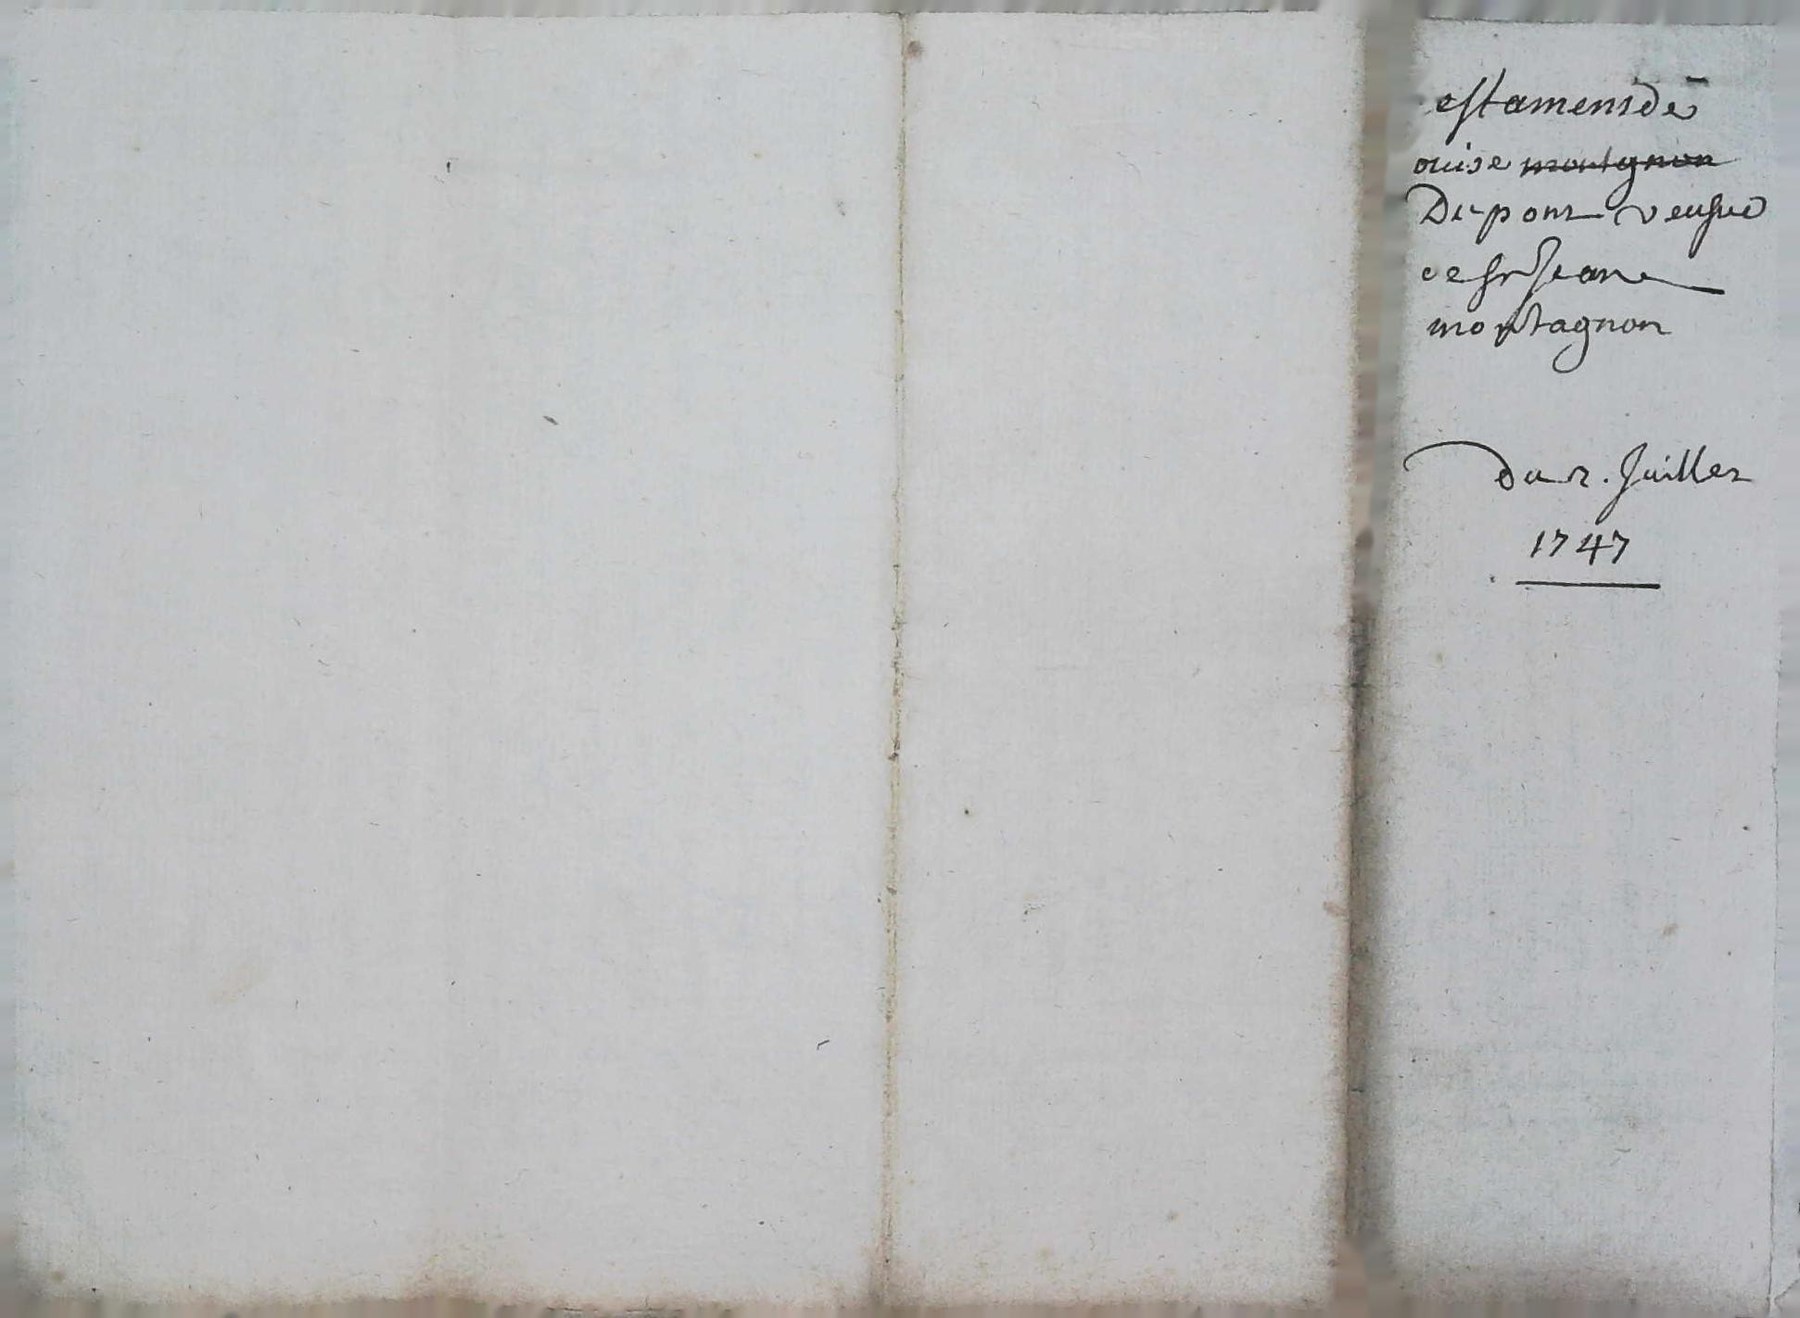 estament de
ouise montagnon
Dupont veufue
de sr Jean
montagnon
du 2. Juillet
1747